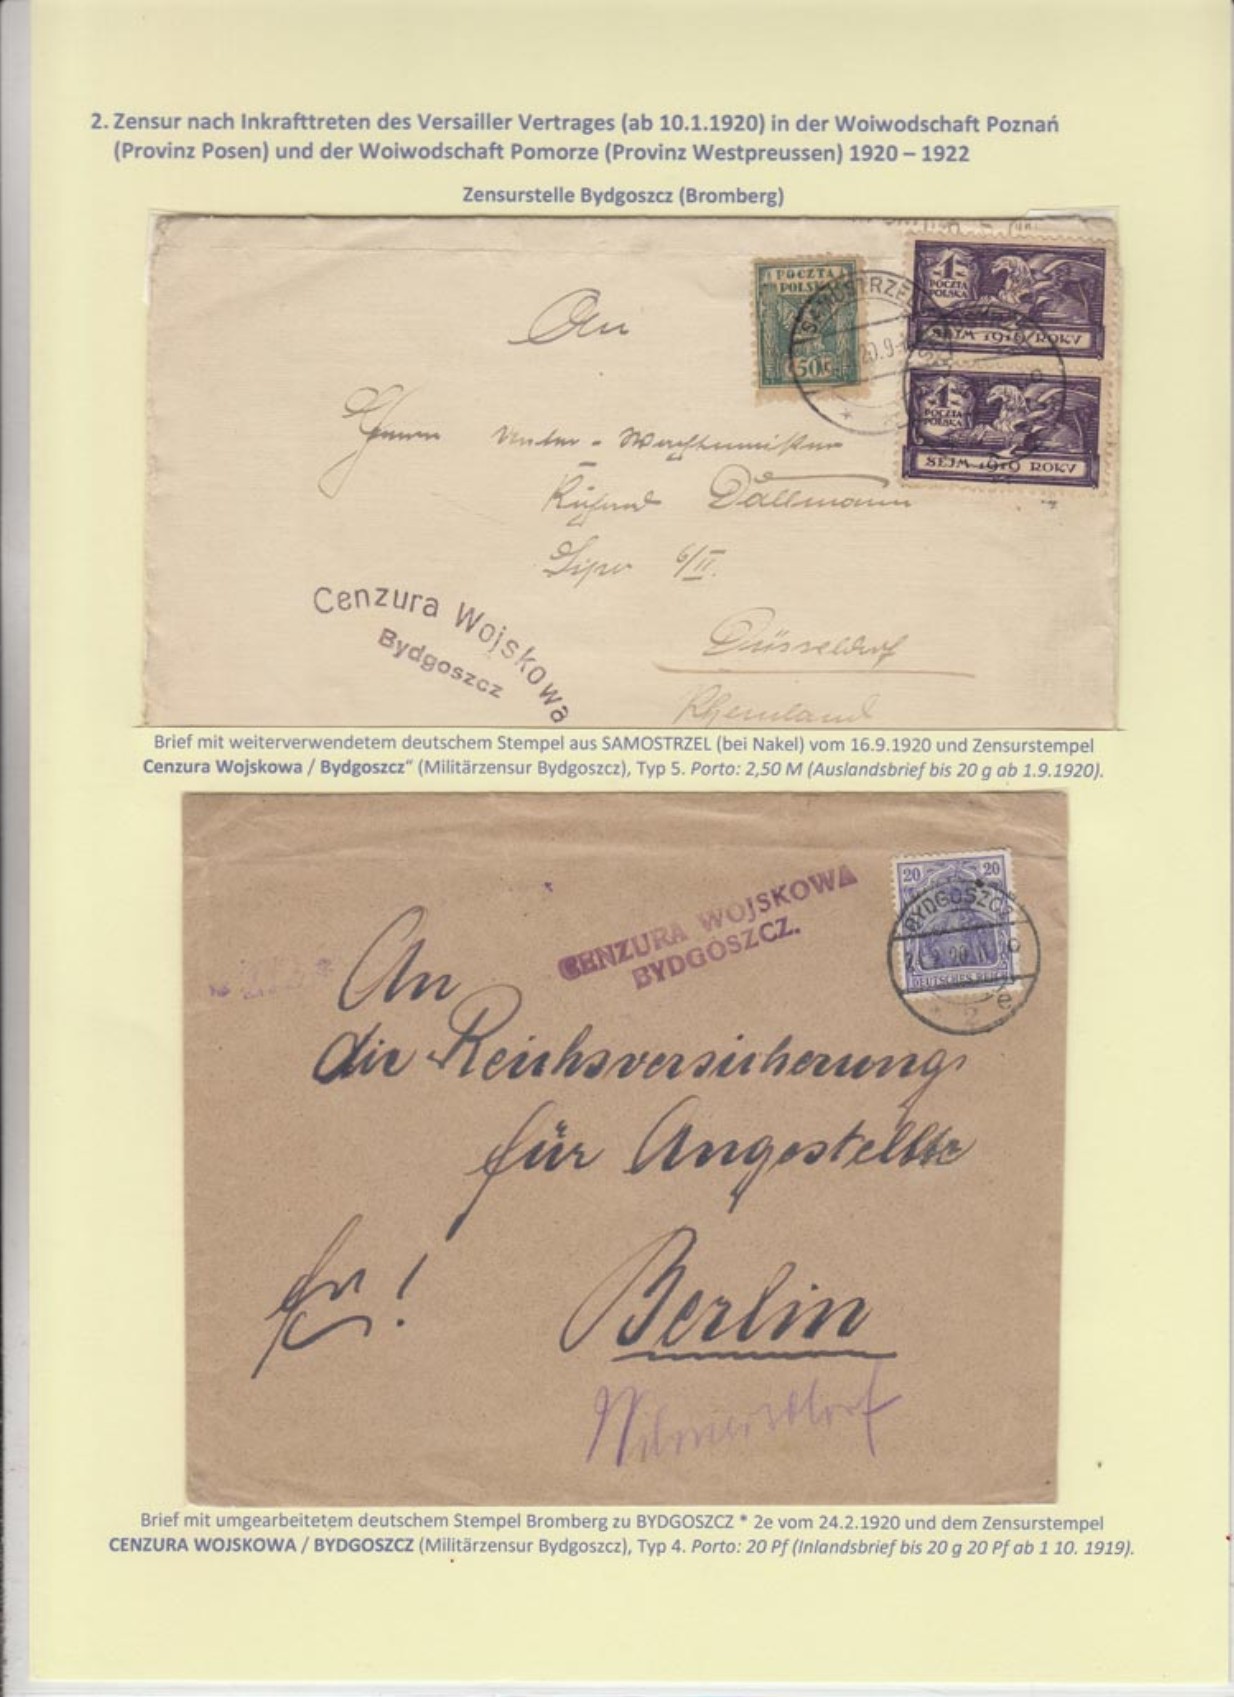 2. Zensur nach Inkrafttreten des Versailler Vertrages (ab 10.1.1920) in der Woiwodschaft Poznań
(Provinz Posen) und der Woiwodschaft Pomorze (Provinz Westpreussen) 1920 – 1922
Zensurstelle Bydgoszcz (Bromberg)
POCZTA
POLSKA
50
1
POCZTA
POLSKA
SEJM 1919 ROKU
1
POCZTA
POLSKA
SEJM 1919 ROKU
An
Herrn
Dallmann
Sipo 6/II.
Düsseldorf
Rheinland
Cenzura Wojskowa
Bydgoszcz
Brief mit weiterverwendetem deutschem Stempel aus SAMOSTRZEL (bei Nakel) vom 16.9.1920 und Zensurstempel
Cenzura Wojskowa / Bydgoszcz“ (Militärzensur Bydgoszcz), Typ 5. Porto: 2,50 M (Auslandsbrief bis 20 g ab 1.9.1920).
20 20
BYDGOSZCZ
DEUTSCHES REICH
2 e
CENZURA WOJSKOWA
BYDGOSZCZ.
An
die Reichsversicherung
für Angestellte
Berlin
Wilmersdorf
Brief mit umgearbeitetem deutschem Stempel Bromberg zu BYDGOSZCZ * 2e vom 24.2.1920 und dem Zensurstempel
CENZURA WOJSKOWA / BYDGOSZCZ (Militärzensur Bydgoszcz), Typ 4. Porto: 20 Pf (Inlandsbrief bis 20 g 20 Pf ab 1 10. 1919).